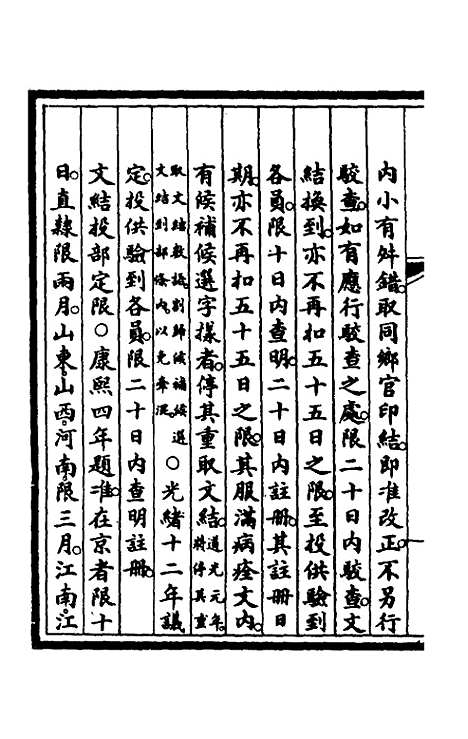 內小有舛錯。取同鄉官印結。即准改正。不另行
駮查。如有應行駮查之處。限二十日內駮查。文
結換到。亦不再扣五十五日之限。至投供驗到
各員。限十日內查明。二十日內註冊。其註冊日
期。亦不再扣五十五日之限。其服滿病痊文內。
有候補候選字樣者。停其重取文結。道光元年。將停其重
取文結數議刪歸候補候選文結到部條內以免牽混〇光緒十二年議
定投供驗到各員。限二十日內查明註冊。
文結投部定限〇康熙四年題准。在京者限十
日。直隸限兩月。山東。山西。河南。限三月。江南。江